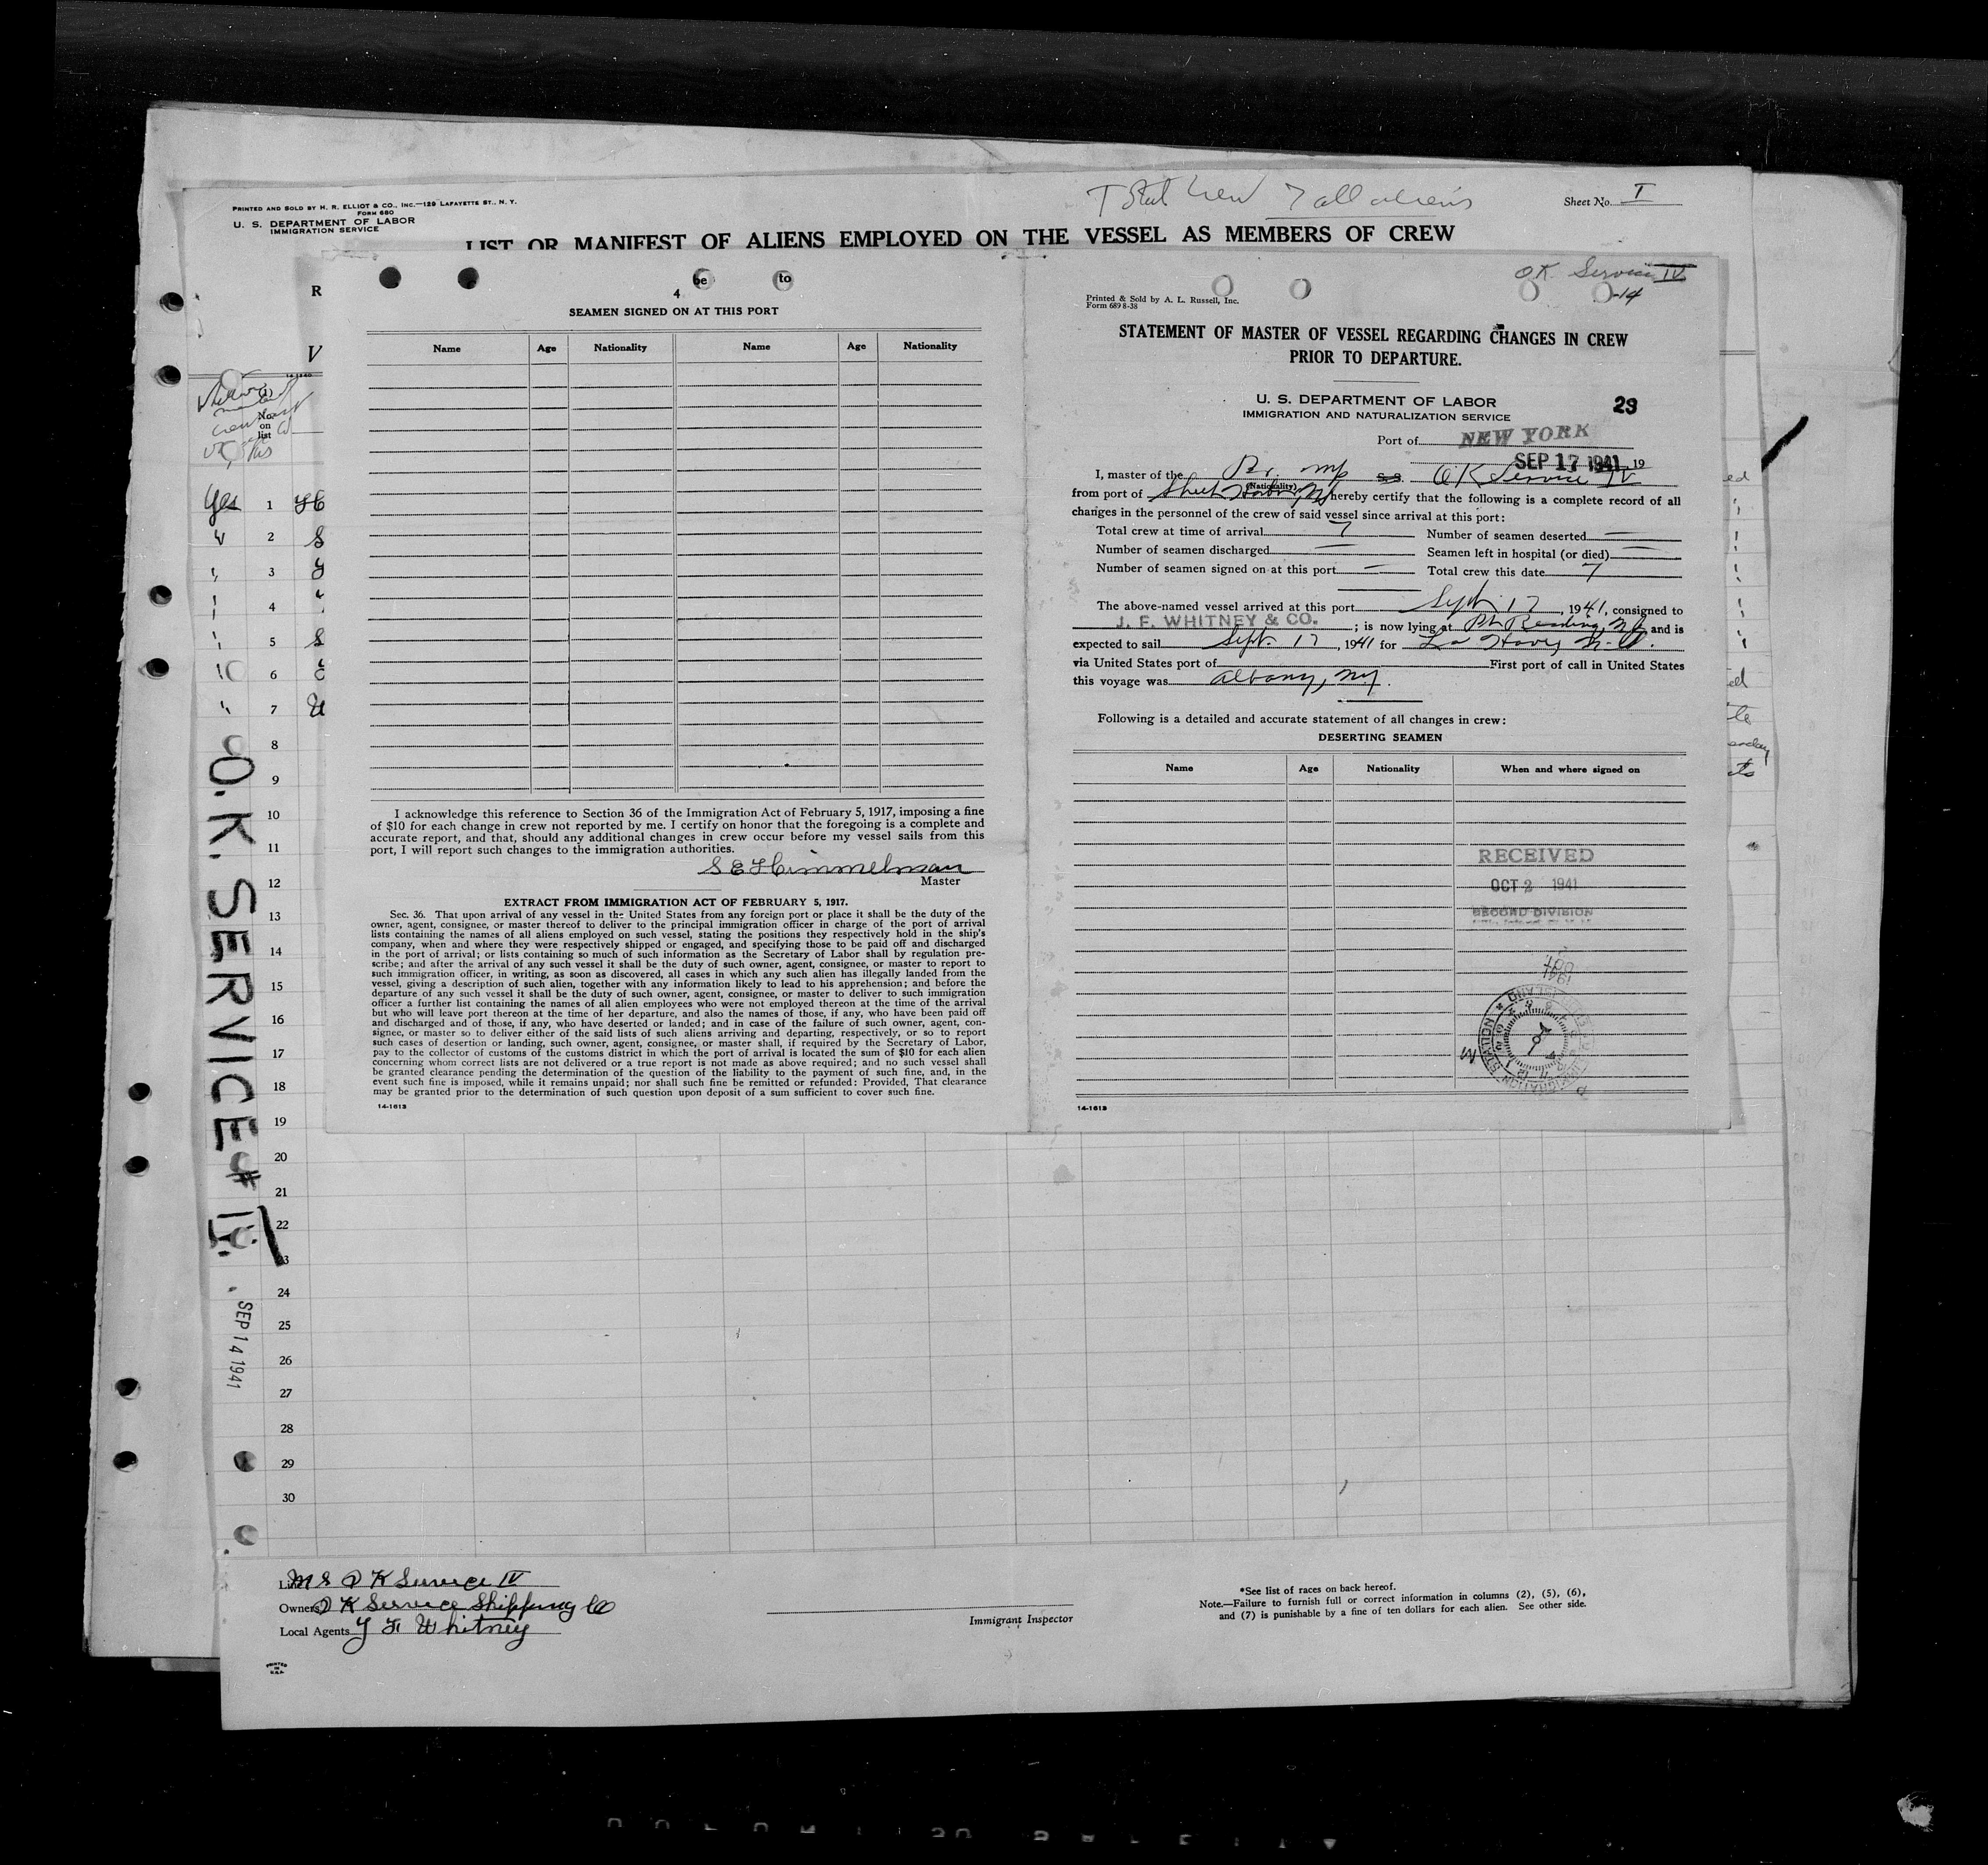 PRINTED AND SOLD BY H. R. ELLIOT & CO., INC.—129 LAFAYETTE ST., N. Y.
FORM 680
U. S. DEPARTMENT OF LABOR
IMMIGRATION SERVICE
7 all aliens
Sheet No. I
LIST OR MANIFEST OF ALIENS EMPLOYED ON THE VESSEL AS MEMBERS OF CREW
R
V
(1)
No.
on
list
Yes 1 H
2 S
3
4
5 S
6
7 W
8
9
10
11
12
13
14
15
16
17
18
19
20
21
22
23
24
25
26
27
28
29
30
O.K. SERVICE # IV.
SEP 14 1941
be to
4
SEAMEN SIGNED ON AT THIS PORT
Name Age Nationality Name Age Nationality
I acknowledge this reference to Section 36 of the Immigration Act of February 5, 1917, imposing a fine
of $10 for each change in crew not reported by me. I certify on honor that the foregoing is a complete and
accurate report, and that, should any additional changes in crew occur before my vessel sails from this
port, I will report such changes to the immigration authorities.
S E Himmelman
Master
EXTRACT FROM IMMIGRATION ACT OF FEBRUARY 5, 1917.
Sec. 36. That upon arrival of any vessel in the United States from any foreign port or place it shall be the duty of the
owner, agent, consignee, or master thereof to deliver to the principal immigration officer in charge of the port of arrival
lists containing the names of all aliens employed on such vessel, stating the positions they respectively hold in the ship's
company, when and where they were respectively shipped or engaged, and specifying those to be paid off and discharged
in the port of arrival; or lists containing so much of such information as the Secretary of Labor shall by regulation pre-
scribe; and after the arrival of any such vessel it shall be the duty of such owner, agent, consignee, or master to report to
such immigration officer, in writing, as soon as discovered, all cases in which any such alien has illegally landed from the
vessel, giving a description of such alien, together with any information likely to lead to his apprehension; and before the
departure of any such vessel it shall be the duty of such owner, agent, consignee, or master to deliver to such immigration
officer a further list containing the names of all alien employees who were not employed thereon at the time of the arrival
but who will leave port thereon at the time of her departure, and also the names of those, if any, who have been paid off
and discharged and of those, if any, who have deserted or landed; and in case of the failure of such owner, agent, con-
signee, or master so to deliver either of the said lists of such aliens arriving and departing, respectively, or so to report
such cases of desertion or landing, such owner, agent, consignee, or master shall, if required by the Secretary of Labor,
pay to the collector of customs of the customs district in which the port of arrival is located the sum of $10 for each alien
concerning whom correct lists are not delivered or a true report is not made as above required; and no such vessel shall
be granted clearance pending the determination of the question of the liability to the payment of such fine, and, in the
event such fine is imposed, while it remains unpaid; nor shall such fine be remitted or refunded: Provided, That clearance
may be granted prior to the determination of such question upon deposit of a sum sufficient to cover such fine.
14-1613
O.K. Service IV
-14
Printed & Sold by A. L. Russell, Inc.
Form 689 8-38
STATEMENT OF MASTER OF VESSEL REGARDING CHANGES IN CREW
PRIOR TO DEPARTURE.
U. S. DEPARTMENT OF LABOR
IMMIGRATION AND NATURALIZATION SERVICE
29
Port of NEW YORK
SEP 17 1941, 19
I, master of the Br. S.S. OK Service IV
(Nationality)
from port of Sheet Harbor, hereby certify that the following is a complete record of all
changes in the personnel of the crew of said vessel since arrival at this port:
Total crew at time of arrival 7 Number of seamen deserted —
Number of seamen discharged — Seamen left in hospital (or died) —
Number of seamen signed on at this port — Total crew this date 7
The above-named vessel arrived at this port Sept. 17, 1941, consigned to
J. F. WHITNEY & CO.; is now lying at Pt. Reading, NJ and is
expected to sail Sept. 17, 1941 for La Have, N.S.
via United States port of First port of call in United States
this voyage was Albany, NY.
Following is a detailed and accurate statement of all changes in crew:
DESERTING SEAMEN
Name Age Nationality When and where signed on
RECEIVED
OCT 2 1941
SECOND DIVISION
14-1613
Line MS O K Service IV
Owners O K Service Shipping Co
Local Agents J F Whitney
Immigrant Inspector
*See list of races on back hereof.
Note.—Failure to furnish full or correct information in columns (2), (5), (6),
and (7) is punishable by a fine of ten dollars for each alien. See other side.
PRINTED
IN
U.S.A.